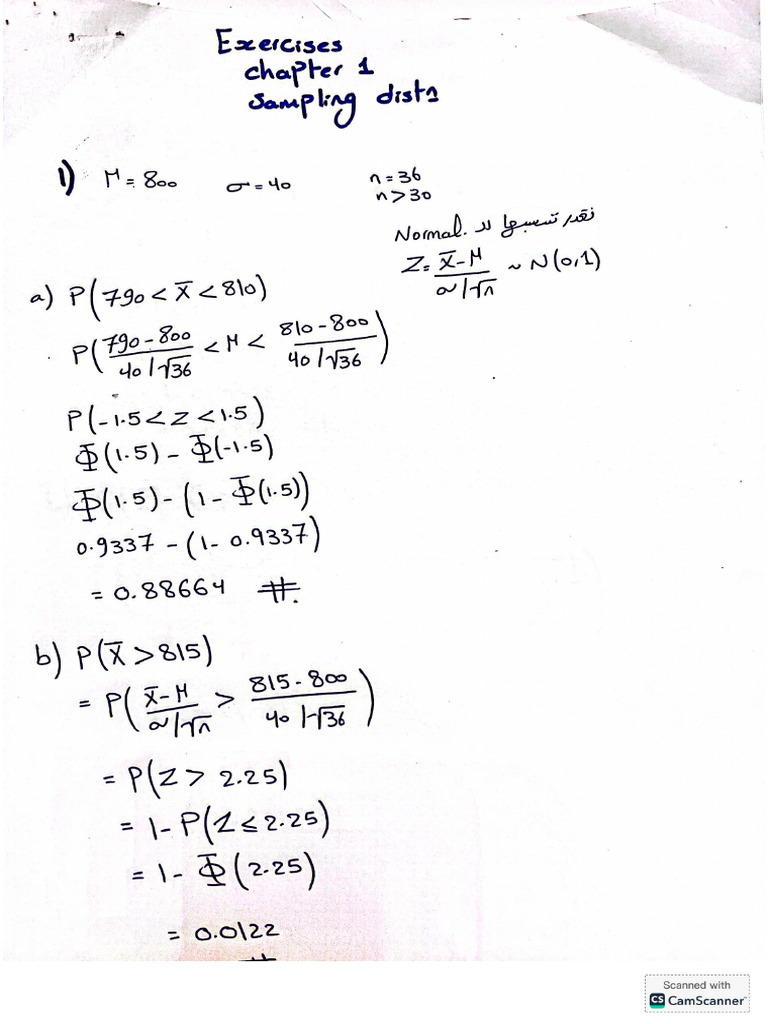 Exercises
chapter 1
sampling distn
1) M = 800 σ = 40 n = 36
n > 30
نقدر نسبها لـ Normal.
Z = X̄ - M / σ/√n ~ N(0,1)
a) P(790 < X̄ < 810)
P(790 - 800 / 40/√36 < M < 810 - 800 / 40/√36)
P(-1.5 < Z < 1.5)
Φ(1.5) - Φ(-1.5)
Φ(1.5) - (1 - Φ(1.5))
0.9337 - (1 - 0.9337)
= 0.88664 #.
b) P(X̄ > 815)
= P(X̄ - M / σ/√n > 815 - 800 / 40/√36)
= P(Z > 2.25)
= 1 - P(Z ≤ 2.25)
= 1 - Φ(2.25)
= 0.0122
#
Scanned with
CS CamScanner